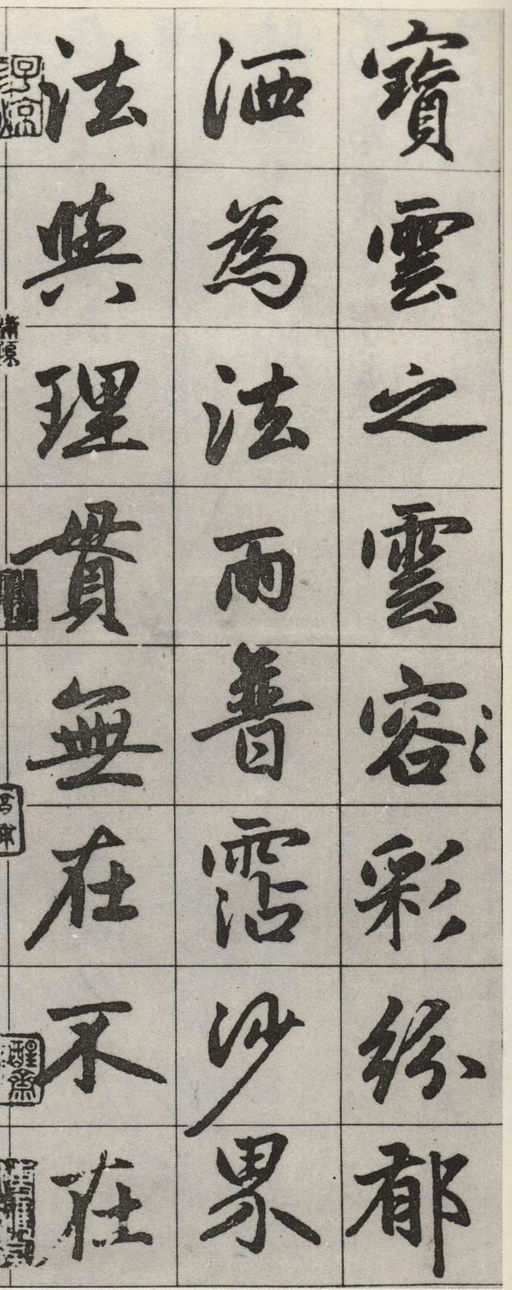 寶雲之雲容彩紛郁
洒為法雨普霑沙界
法與理貫無在不在
醒齋